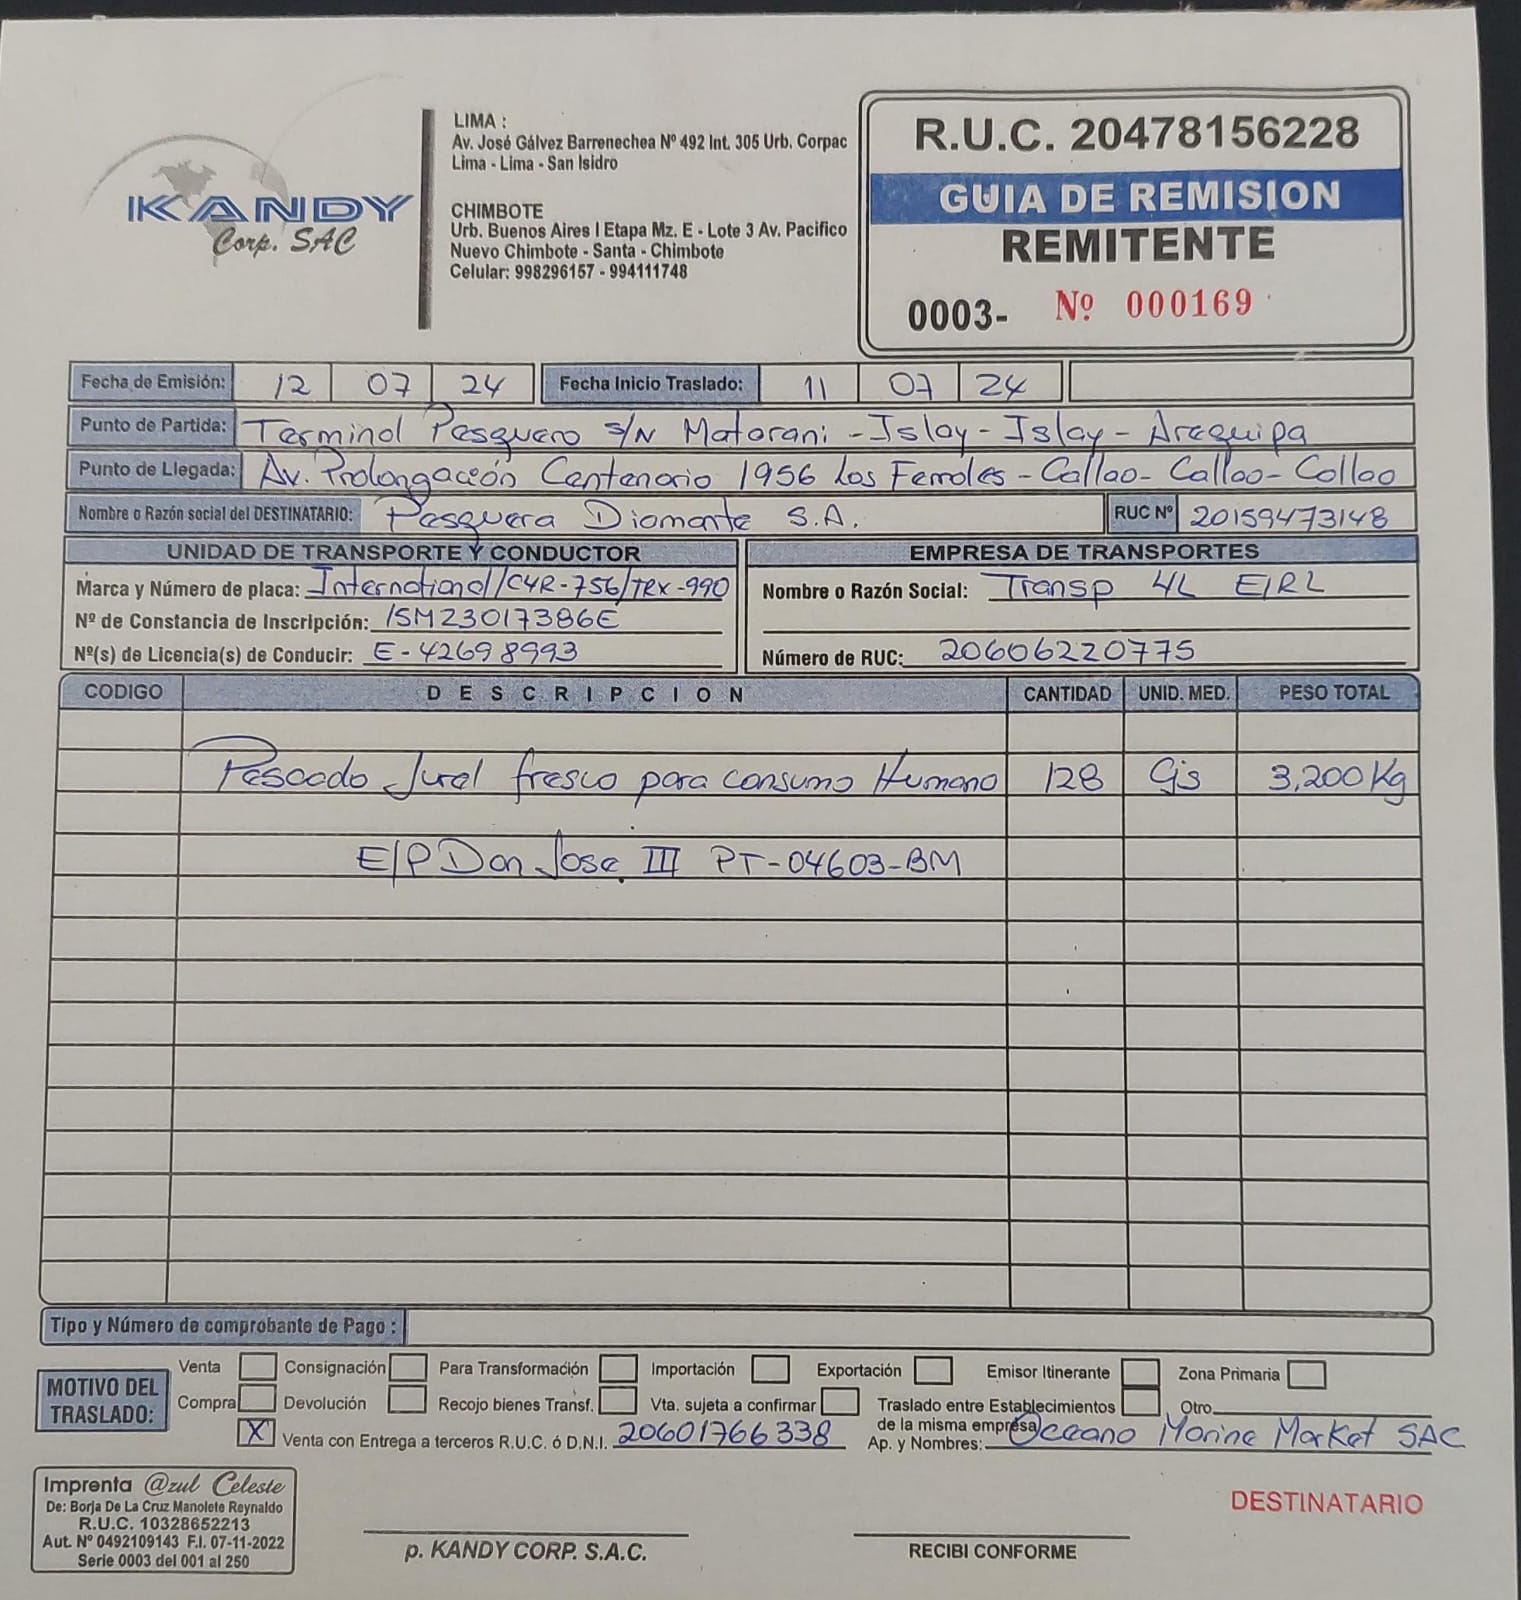 KANDY
Corp. SAC
LIMA :
Av. José Gálvez Barrenechea Nº 492 Int. 305 Urb. Corpac
Lima - Lima - San Isidro
CHIMBOTE
Urb. Buenos Aires I Etapa Mz. E - Lote 3 Av. Pacifico
Nuevo Chimbote - Santa - Chimbote
Celular: 998296157 - 994111748
R.U.C. 20478156228
GUIA DE REMISION
REMITENTE
0003- Nº 000169
Fecha de Emisión: 12 07 24 Fecha Inicio Traslado: 11 07 24
Punto de Partida: Terminal Pesquero S/N Matarani - Islay - Islay - Arequipa
Punto de Llegada: Av. Prolongación Centenario 1956 Los Ferroles - Callao - Callao - Callao
Nombre o Razón social del DESTINATARIO: Pesquera Diamante S.A. RUC Nº 20159473148
UNIDAD DE TRANSPORTE Y CONDUCTOR EMPRESA DE TRANSPORTES
Marca y Número de placa: International/C4R-756/TRX-990 Nombre o Razón Social: Transp 4L EIRL
Nº de Constancia de Inscripción: 15M23017386E
Nº(s) de Licencia(s) de Conducir: E-42698993 Número de RUC: 20606220775
CODIGO DESCRIPCION CANTIDAD UNID. MED. PESO TOTAL
Pescado Jurel fresco para consumo Humano 128 Cjs 3,200 Kg
E/P Don Jose III PT-04603-BM
Tipo y Número de comprobante de Pago :
MOTIVO DEL TRASLADO:
Venta Consignación Para Transformación Importación Exportación Emisor Itinerante Zona Primaria
Compra Devolución Recojo bienes Transf. Vta. sujeta a confirmar Traslado entre Establecimientos de la misma empresa Otro
X Venta con Entrega a terceros R.U.C. ó D.N.I. 20601766338 Ap. y Nombres: Oceano Marine Market SAC
Imprenta @zul Celeste
De: Borja De La Cruz Manolete Reynaldo
R.U.C. 10328652213
Aut. Nº 0492109143 F.I. 07-11-2022
Serie 0003 del 001 al 250
p. KANDY CORP. S.A.C.
RECIBI CONFORME
DESTINATARIO